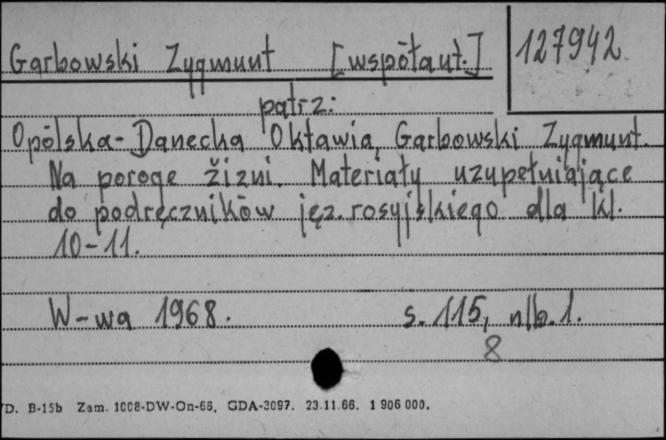 Garbowski Zygmunt [współaut.] 127942
patrz:
Opólska-Danecka Oktawia, Garbowski Zygmunt.
Na poroge žizni. Materiały uzupełniające
do podręczników jęz. rosyjskiego dla kl.
10-11.
W-wa 1968. s. 115, nlb. 1.
8
D. B-15b Zam. 1008-DW-On-66. GDA-3097. 23.11.66. 1 906 000.